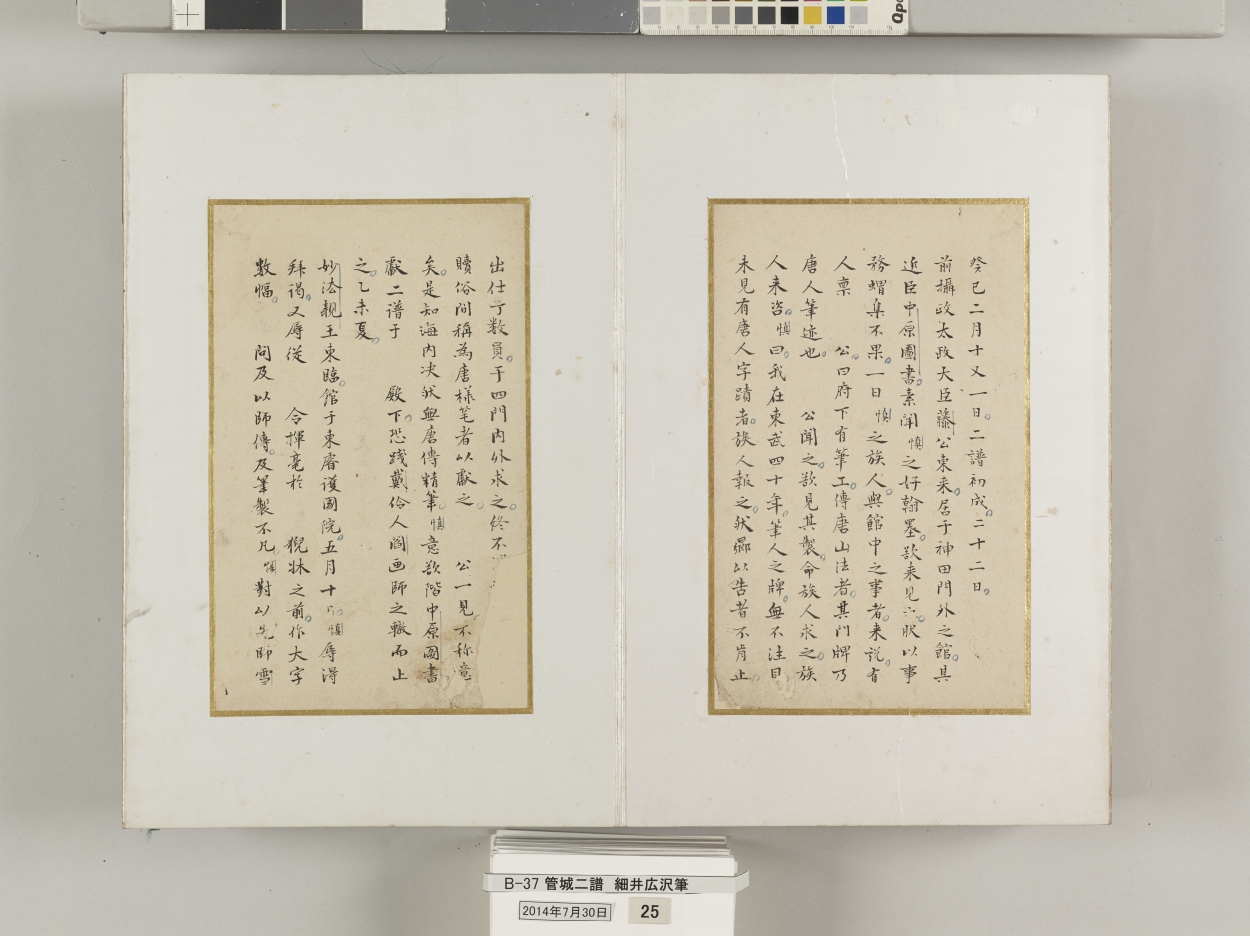 癸巳二月十又一日二譜初成二十二日
前攝政太政大臣藤公東来居于神田門外之館其
近臣中原圖書素聞慎之好翰墨欲来見状以事
務蝟集不果一日慎之族人與館中之事者来説有
人稟　公曰府下有筆工傳唐山法者其門牌乃
唐人筆迹也　公聞之欲見其製命族人求之族
人来咨慎曰我在東武四十年筆人之牌無不注目
未見有唐人字蹟者族人報之然以告者不肯止
出仕丁数員于四門内外求之終不
贖俗间稱為唐様笔者以獻之　公一見不称意
矣是知海内决狀無唐傳精筆慎意欲階中原圖書
獻二譜于　殿下恐踐戴伶人圖画師之轍而止
之乙未夏
妙法親王東臨館于東睿護國院五月十慎辱得
拜謁又辱従　令揮毫於　猊牀之前作大字
数幅　问及以師傳及筆製不凡慎對以先師雪
B-37 管城二譜 細井広沢筆
2014年7月30日
25